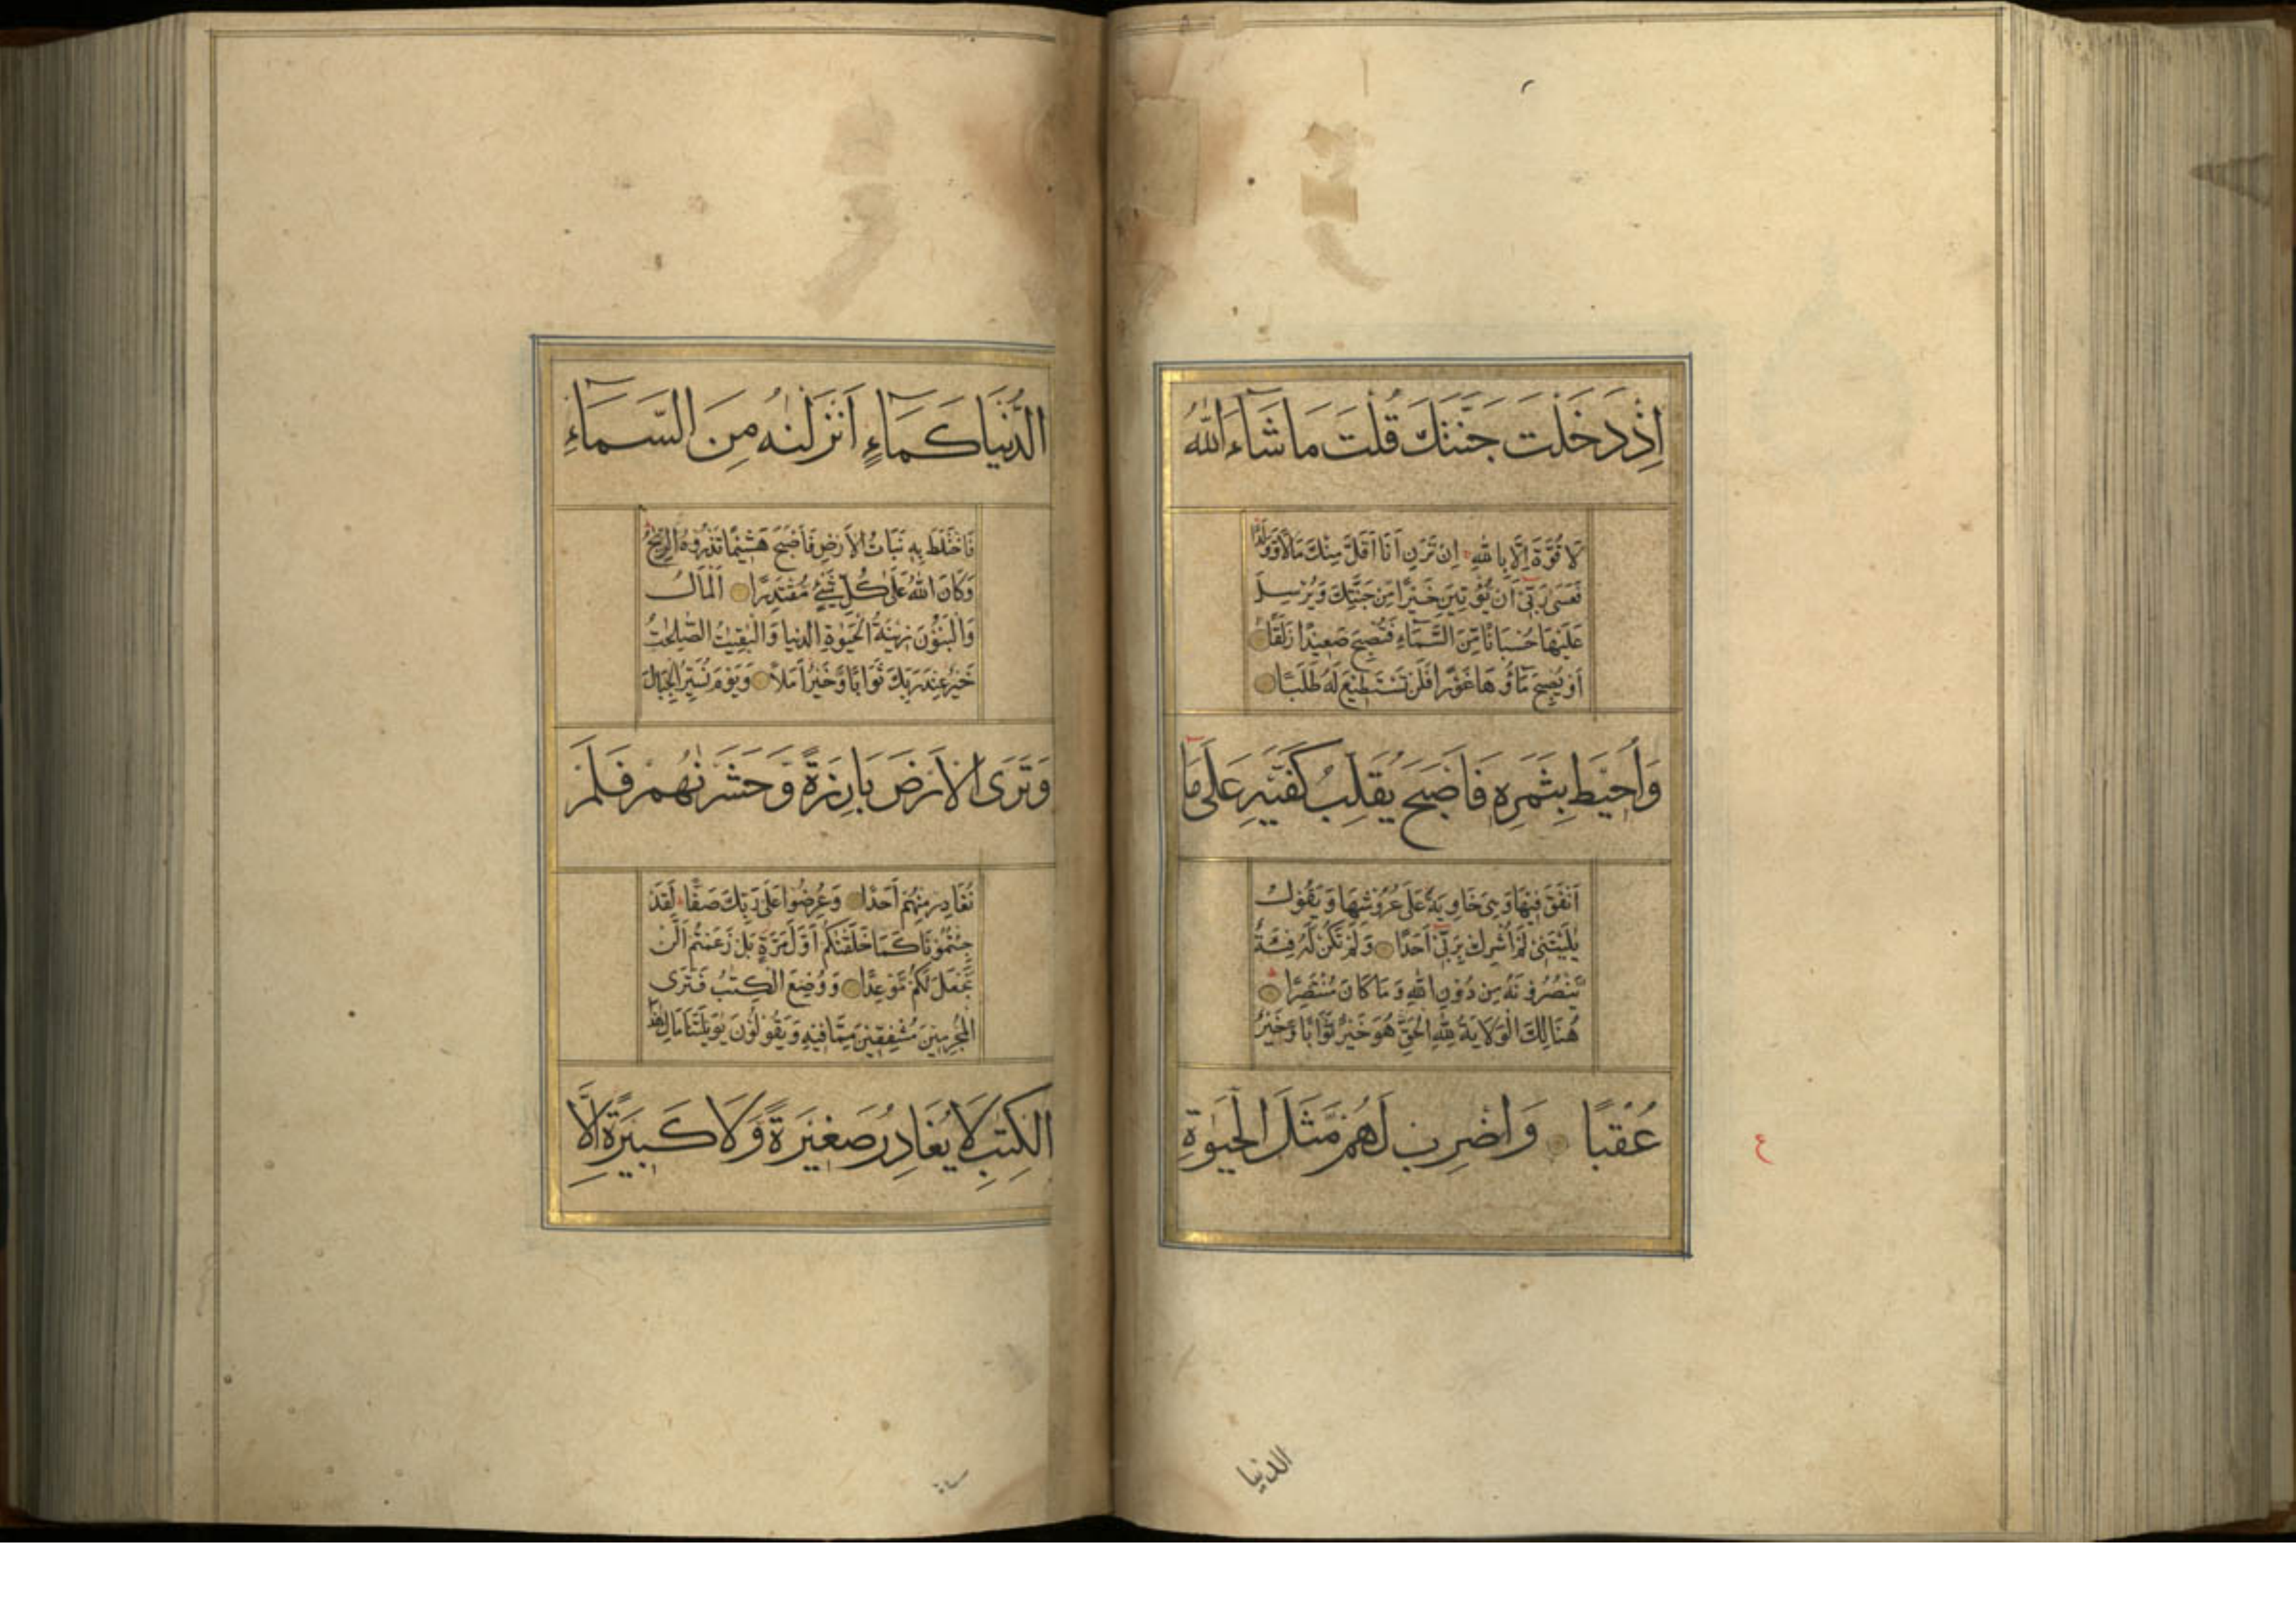 اِذْ دَخَلْتَ جَنَّتَكَ قُلْتَ مَا شَآءَ اللّٰهُ
لَا قُوَّةَ اِلَّا بِاللّٰهِ اِنْ تَرَنِ اَنَا اَقَلَّ مِنْكَ مَالًا وَّوَلَدًا
فَعَسٰى رَبِّىْٓ اَنْ يُّؤْتِيَنِ خَيْرًا مِّنْ جَنَّتِكَ وَيُرْسِلَ
عَلَيْهَا حُسْبَانًا مِّنَ السَّمَآءِ فَتُصْبِحَ صَعِيْدًا زَلَقًا
اَوْ يُصْبِحَ مَآؤُهَا غَوْرًا فَلَنْ تَسْتَطِيْعَ لَهٗ طَلَبًا
وَاُحِيْطَ بِثَمَرِهٖ فَاَصْبَحَ يُقَلِّبُ كَفَّيْهِ عَلٰى مَآ
اَنْفَقَ فِيْهَا وَهِىَ خَاوِيَةٌ عَلٰى عُرُوْشِهَا وَيَقُوْلُ
يٰلَيْتَنِىْ لَمْ اُشْرِكْ بِرَبِّىْٓ اَحَدًا وَلَمْ تَكُنْ لَّهٗ فِئَةٌ
يَّنْصُرُوْنَهٗ مِنْ دُوْنِ اللّٰهِ وَمَا كَانَ مُنْتَصِرًا
هُنَالِكَ الْوَلَايَةُ لِلّٰهِ الْحَقِّ هُوَ خَيْرٌ ثَوَابًا وَّخَيْرٌ
عُقْبًا وَاضْرِبْ لَهُمْ مَّثَلَ الْحَيٰوةِ
ع
الدنيا
الدُّنْيَا كَمَآءٍ اَنْزَلْنٰهُ مِنَ السَّمَآءِ
فَاخْتَلَطَ بِهٖ نَبَاتُ الْاَرْضِ فَاَصْبَحَ هَشِيْمًا تَذْرُوْهُ الرِّيٰحُ
وَكَانَ اللّٰهُ عَلٰى كُلِّ شَىْءٍ مُّقْتَدِرًا اَلْمَالُ
وَالْبَنُوْنَ زِيْنَةُ الْحَيٰوةِ الدُّنْيَا وَالْبٰقِيٰتُ الصّٰلِحٰتُ
خَيْرٌ عِنْدَ رَبِّكَ ثَوَابًا وَّخَيْرٌ اَمَلًا وَيَوْمَ نُسَيِّرُ الْجِبَالَ
وَتَرَى الْاَرْضَ بَارِزَةً وَّحَشَرْنٰهُمْ فَلَمْ
نُغَادِرْ مِنْهُمْ اَحَدًا وَعُرِضُوْا عَلٰى رَبِّكَ صَفًّا لَقَدْ
جِئْتُمُوْنَا كَمَا خَلَقْنٰكُمْ اَوَّلَ مَرَّةٍ بَلْ زَعَمْتُمْ اَلَّنْ
نَّجْعَلَ لَكُمْ مَّوْعِدًا وَوُضِعَ الْكِتٰبُ فَتَرَى
الْمُجْرِمِيْنَ مُشْفِقِيْنَ مِمَّا فِيْهِ وَيَقُوْلُوْنَ يٰوَيْلَتَنَا مَالِ هٰذَا
الْكِتٰبِ لَا يُغَادِرُ صَغِيْرَةً وَّلَا كَبِيْرَةً اِلَّا